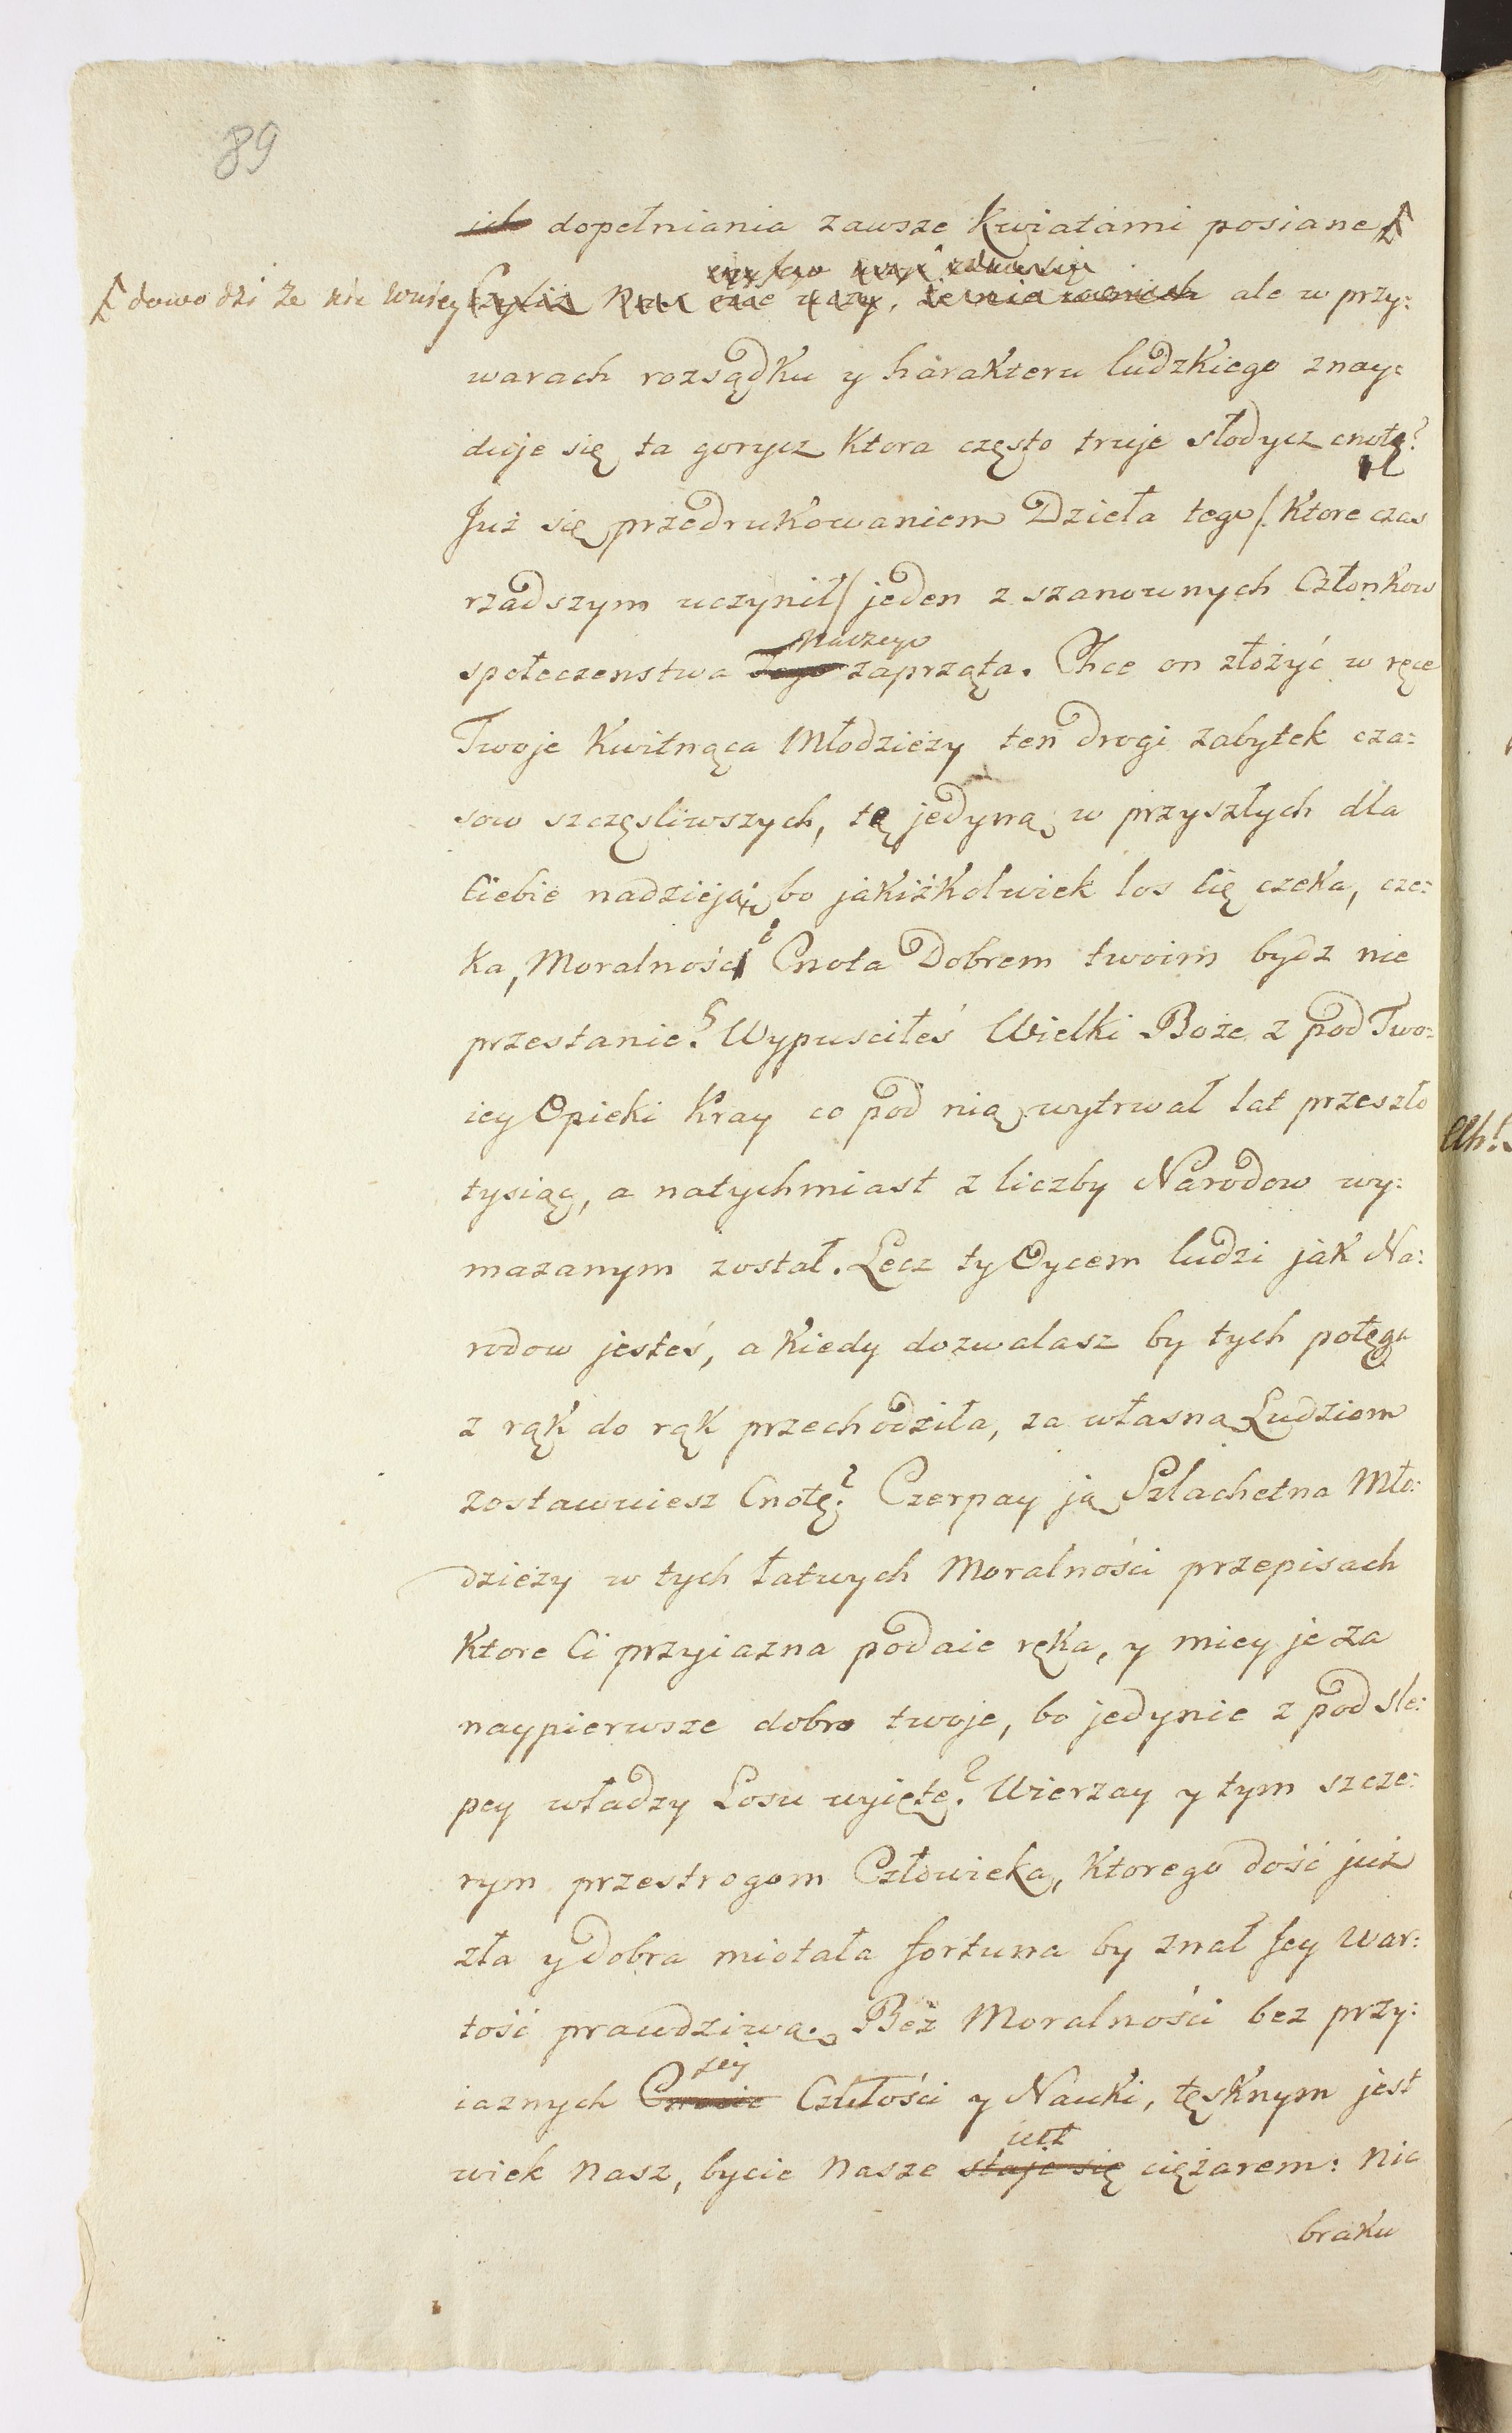 89
ich dopełniania zawsze Kwiatami posiane
dowodzi że nie w niey
ale w przy:
warach rozsądku y harakteru ludzkiego znay:
duje się ta gorycz Ktora często truje słodycz cnoty?
Już się przedrukowaniem Dzieła tego /. Ktore czas
rzadszym uczynił / jeden z szanownych Członkow
naszego
społeczenstwa Tego zaprząta. Chce on złożyć w ręce
Twoje Kwitnąca Młodzieży ten drogi zabytek cza:
sow szczęsliwszych, tę jedyną w przyszłych dla
Ciebie nadzieją; bo jakiżkolwiek los Cię czeka, cze:
ka, Moralność Cnota Dobrem twoim bydz nie
przestanie? Wypusciłeś Wielki Boże z pod Two:
iey Opieki Kray co pod nią wytrwał lat przeszło
tysiąc, a natychmiast z liczby Narodow wy:
mazanym został. Lecz ty Oycem ludzi jak Na:
rodow jesteś, a Kiedy dozwalasz by tych potęga
z rąk do rąk przechodziła, za własną Ludziom
zostawuiesz Cnotę? Czerpay ją Szlachetna Mło:
dzieży w tych łatwych Moralności przepisach
Ktore Ci przyiazna podaie ręka, y miey je za
naypierwsze dobro twoje, bo jedynie z pod śle:
pey władzy Losu wyięte? Wierzay y tym szcze:
rym przestrogom Człowieka, Ktorego dość już
zła y dobra miotała fortuna by znał Jey War:
tość prawdziwą. Bez Moralności bez przy:
Jey
iaznych Cnocie Czułości y Nauki, tęsknym jest
jest
wiek Nasz, bycie Nasze staje się ciężarem: Nic
braku
Ah!